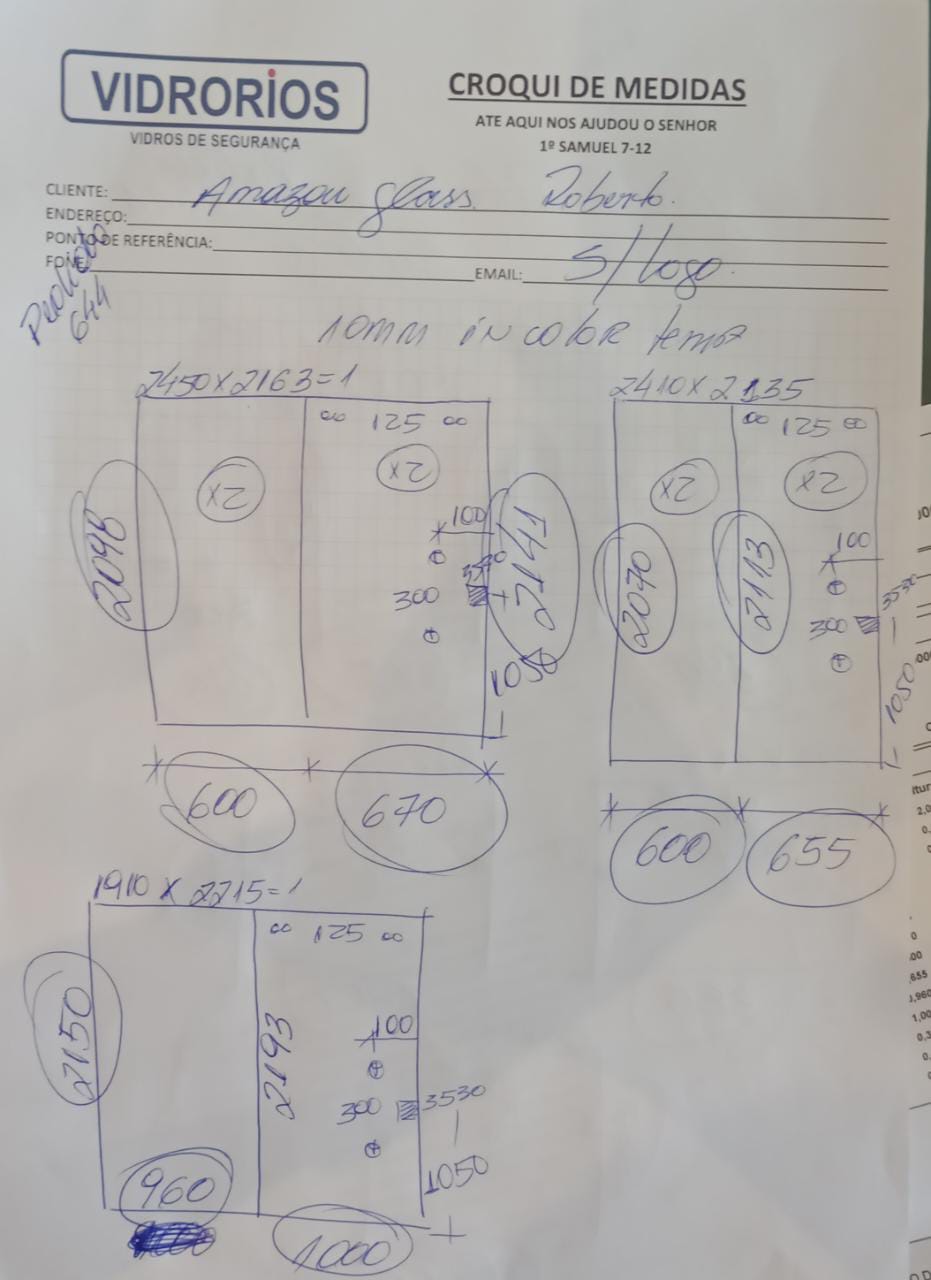 VIDRORIOS
VIDROS DE SEGURANÇA
CROQUI DE MEDIDAS
ATE AQUI NOS AJUDOU O SENHOR
1º SAMUEL 7-12
CLIENTE: Amazon glass Roberto.
ENDEREÇO:
PONTO DE REFERÊNCIA:
FONE: EMAIL: S/Logo.
644
10mm incolor temp
2450 x 2163 = 1
∞ 125 ∞
x2 x2
100
2098
3530
2141
300
1050
600 670
2410 x 2135
∞ 125 ∞
x2 x2
100
2070 2113
3530
300
1050
600 655
1910 x 2215 = 1
∞ 125 ∞
2150 2193
100
300 3530
1050
960
1000